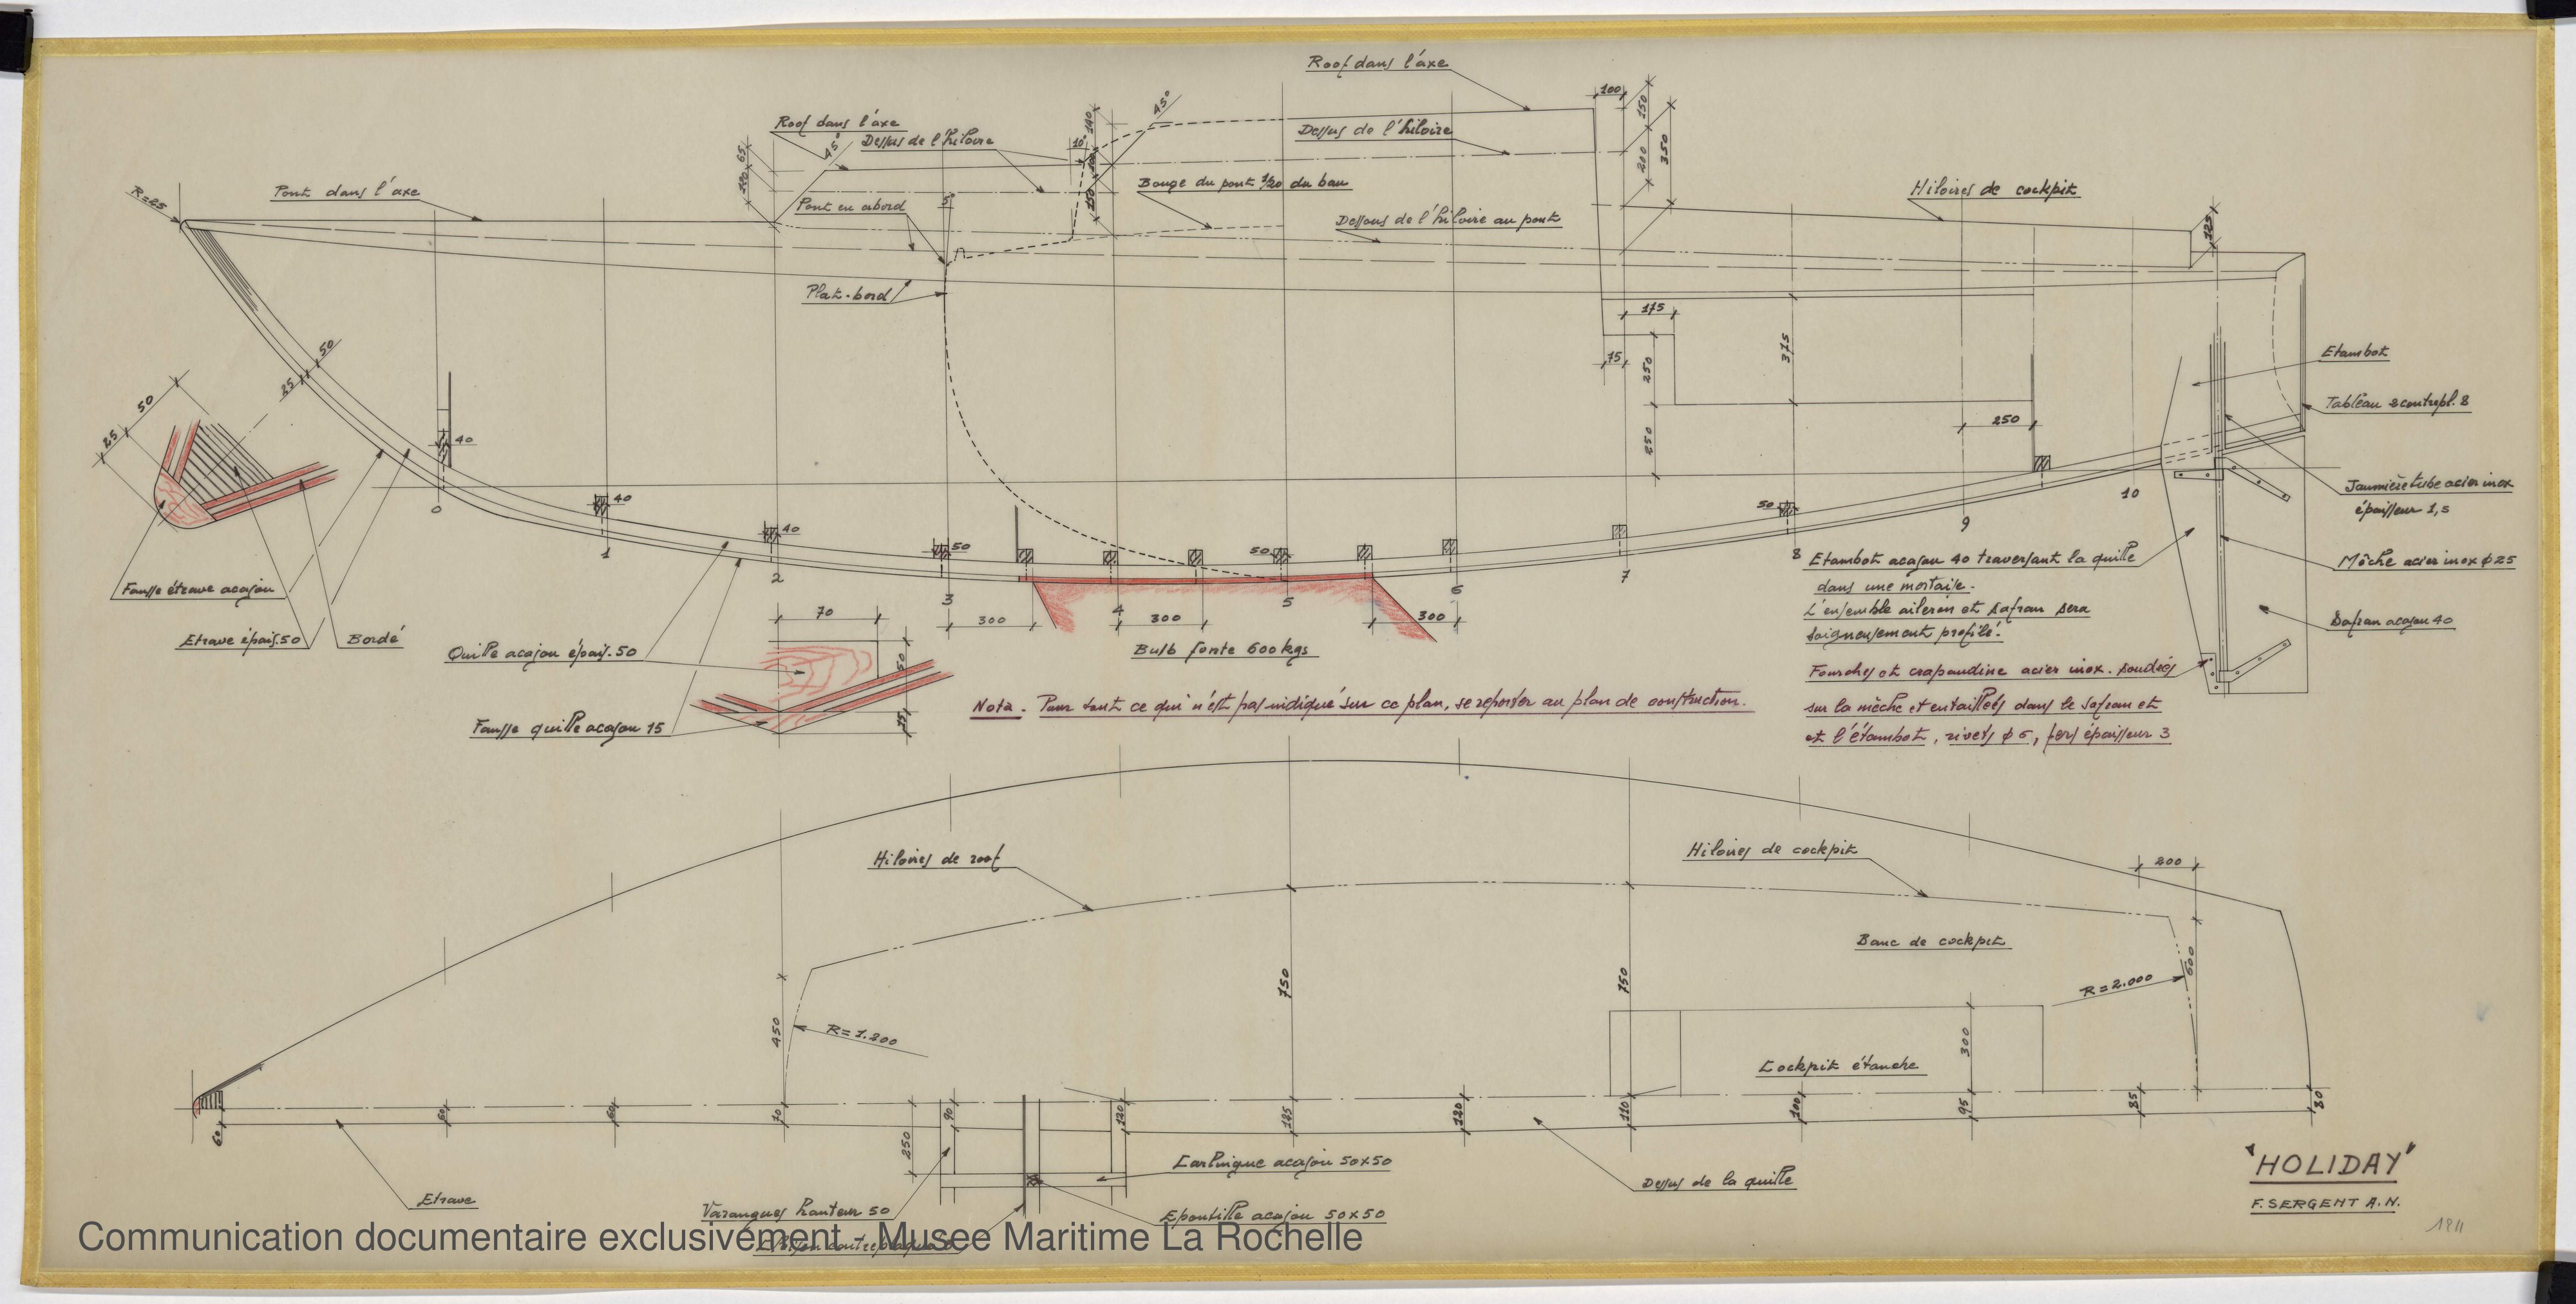 Roof dans l'axe
100
150
350
200
Roof dans l'axe
45°
Dessus de l'hiloire
10°
140
45°
Dessus de l'hiloire
65
R=25
Pont dans l'axe
Pont en abord
5°
150
Bouge du pont 1/20 du bau
Dessous de l'hiloire au pont
Hiloires de cockpit
125
Plat-bord
175
75
250
375
250
250
50
25
50
25
40
40
40
50
50
50
0
1
2
3
4
5
6
7
8
9
10
Etambot
Tableau
Jaumière tube acier inox
épaisseur 1,5
Mèche acier inox φ 25
Safran acajou 40
Fausse étrave acajou
Etrave épais. 50
Bordé
Quille acajou épais. 50
Fausse quille acajou 15
70
50
15
300
300
300
Bulb fonte 600 kgs
Etambot acajou 40 traversant la quille
dans une mortaise.
L'ensemble aileron et safran sera
soigneusement profilé.
Fourches et crapaudine acier inox. soudées
sur la mèche et entaillées dans le safran et
et l'étambot, rivets φ 6, fers épaisseur 3
Nota. Pour tout ce qui n'est pas indiqué sur ce plan, se reporter au plan de construction.
Hiloires de roof
Hiloires de cockpit
200
Banc de cockpit
600
R=2.000
450
R=1.200
750
750
300
Cockpit étanche
60
60
60
70
90
120
125
120
110
100
95
85
80
250
Etrave
Varangues hauteur 50
Carlingue acajou 50x50
Epontille acajou 50x50
Dessus de la quille
"HOLIDAY"
F. SERGENT A.N.
Communication documentaire exclusivement - Musee Maritime La Rochelle